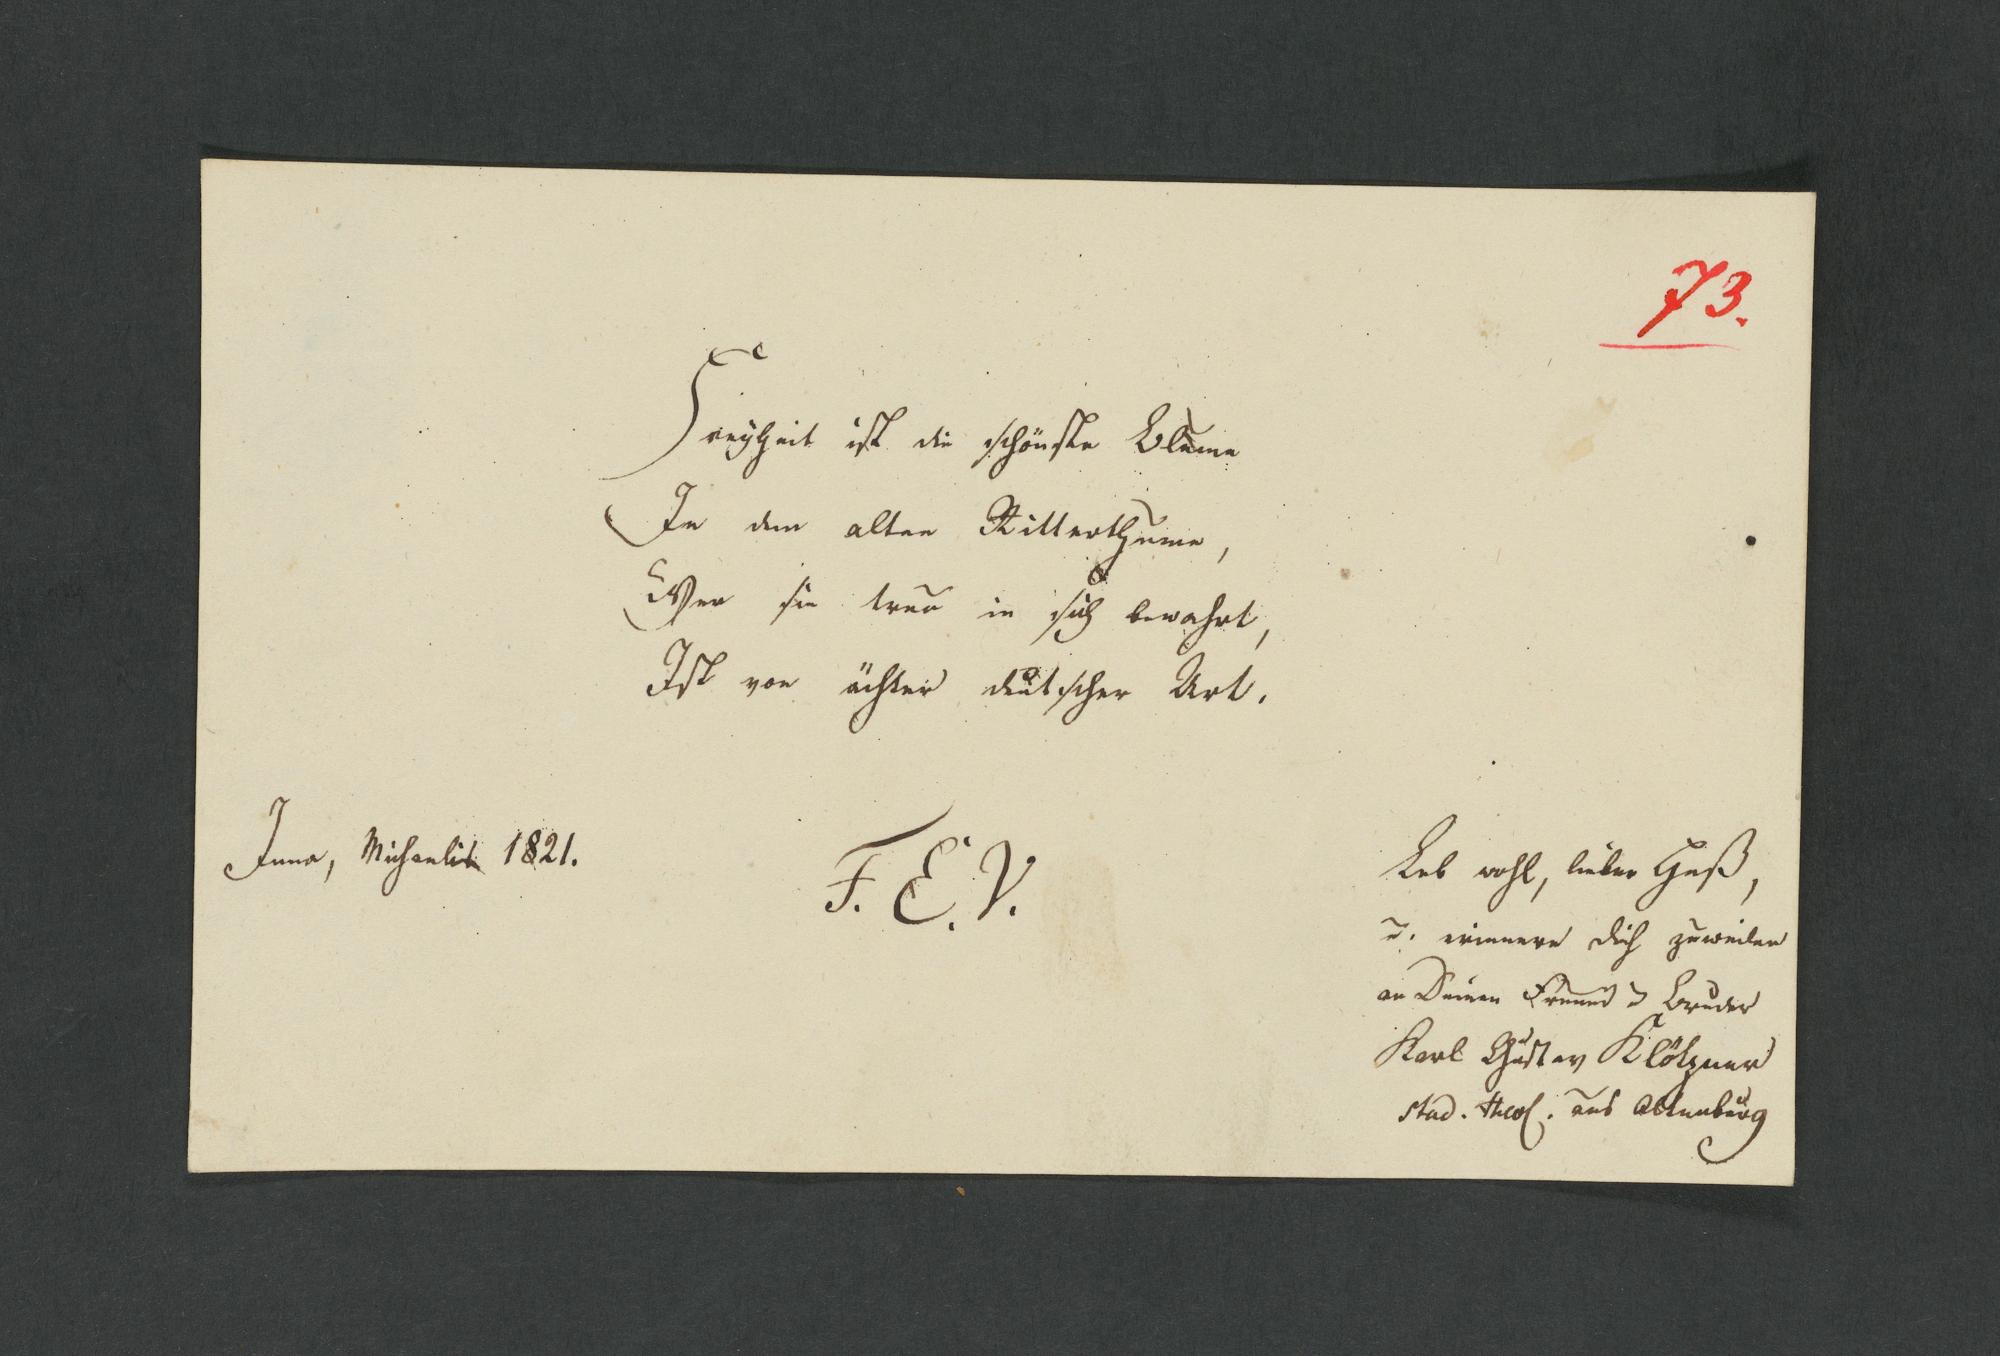 73.
Freyheit ist die schönste Blume
In dem alten Ritterthume,
Wer sie treu in sich bewahrt,
Ist von ächter deutscher Art.
Jena, Michaelis 1821.
F. E. V.
Leb wohl, lieber Heß,
u. erinnere dich zuweilen
an Deinen Freund u Bruder
Karl Gustav Klötzner
stud. theol. aus Altenburg